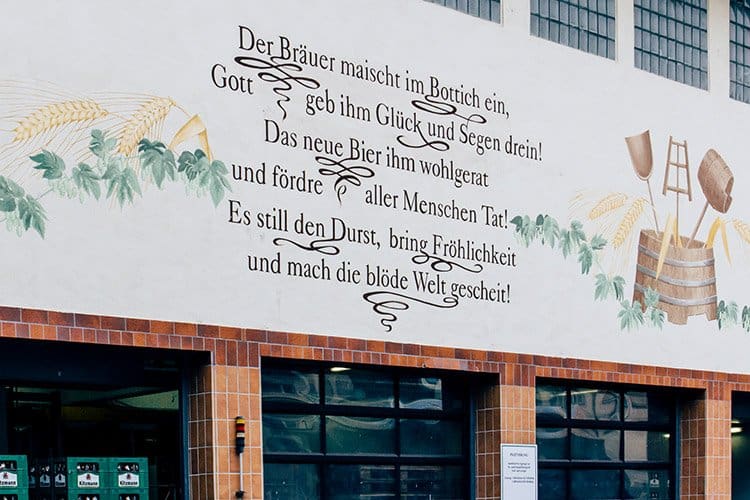 Der Bräuer maischt im Bottich ein,
Gott geb ihm Glück und Segen drein!
Das neue Bier ihm wohlgerat
und fördre aller Menschen Tat!
Es still den Durst, bring Fröhlichkeit
und mach die blöde Welt gescheit!
KITZMANN
KITZMANN
KITZMANN